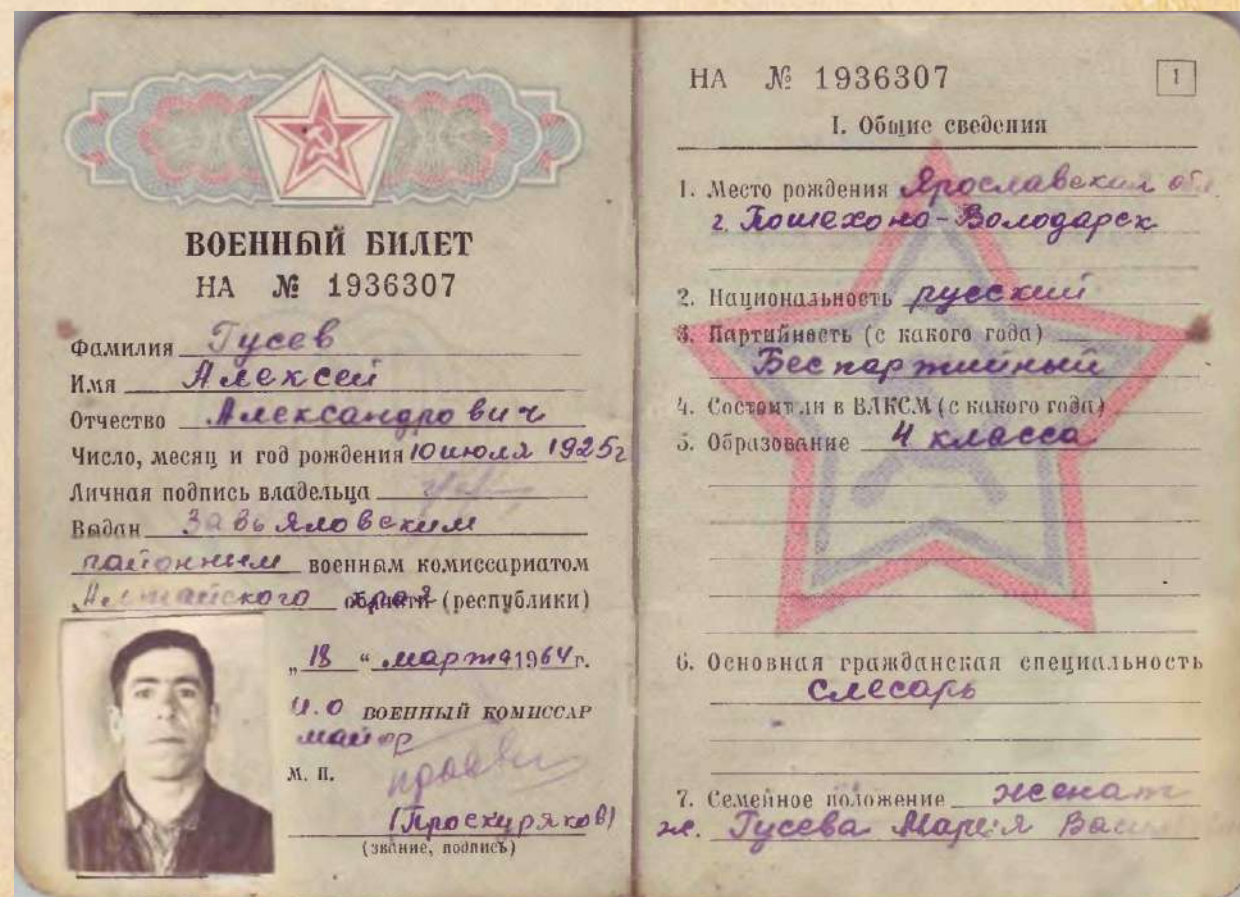 ВОЕННЫЙ БИЛЕТ
НА № 1936307
Фамилия Гусев
Имя Алексей
Отчество Александрович
Число, месяц и год рождения 10 июля 1925г
Личная подпись владельца
Выдан Завьяловским
районным военным комиссариатом
Алтайского края (республики)
„18“ марта 1964 г.
И.О ВОЕННЫЙ КОМИССАР
майор
М. П.
(Проскуряков)
(звание, подпись)
НА № 1936307
1
I. Общие сведения
1. Место рождения Ярославская обл.
г. Пошехоно-Володарск
2. Национальность русский
3. Партийность (с какого года)
Беспартийный
4. Состоял ли в ВЛКСМ (с какого года)
5. Образование 4 класса
6. Основная гражданская специальность
Слесарь
7. Семейное положение женат
ж. Гусева Мария